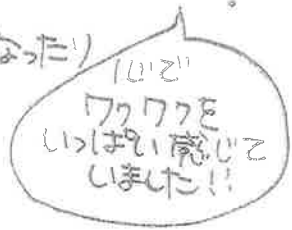 なったり
心で
ワクワクを
いっぱい感じて
いました!!